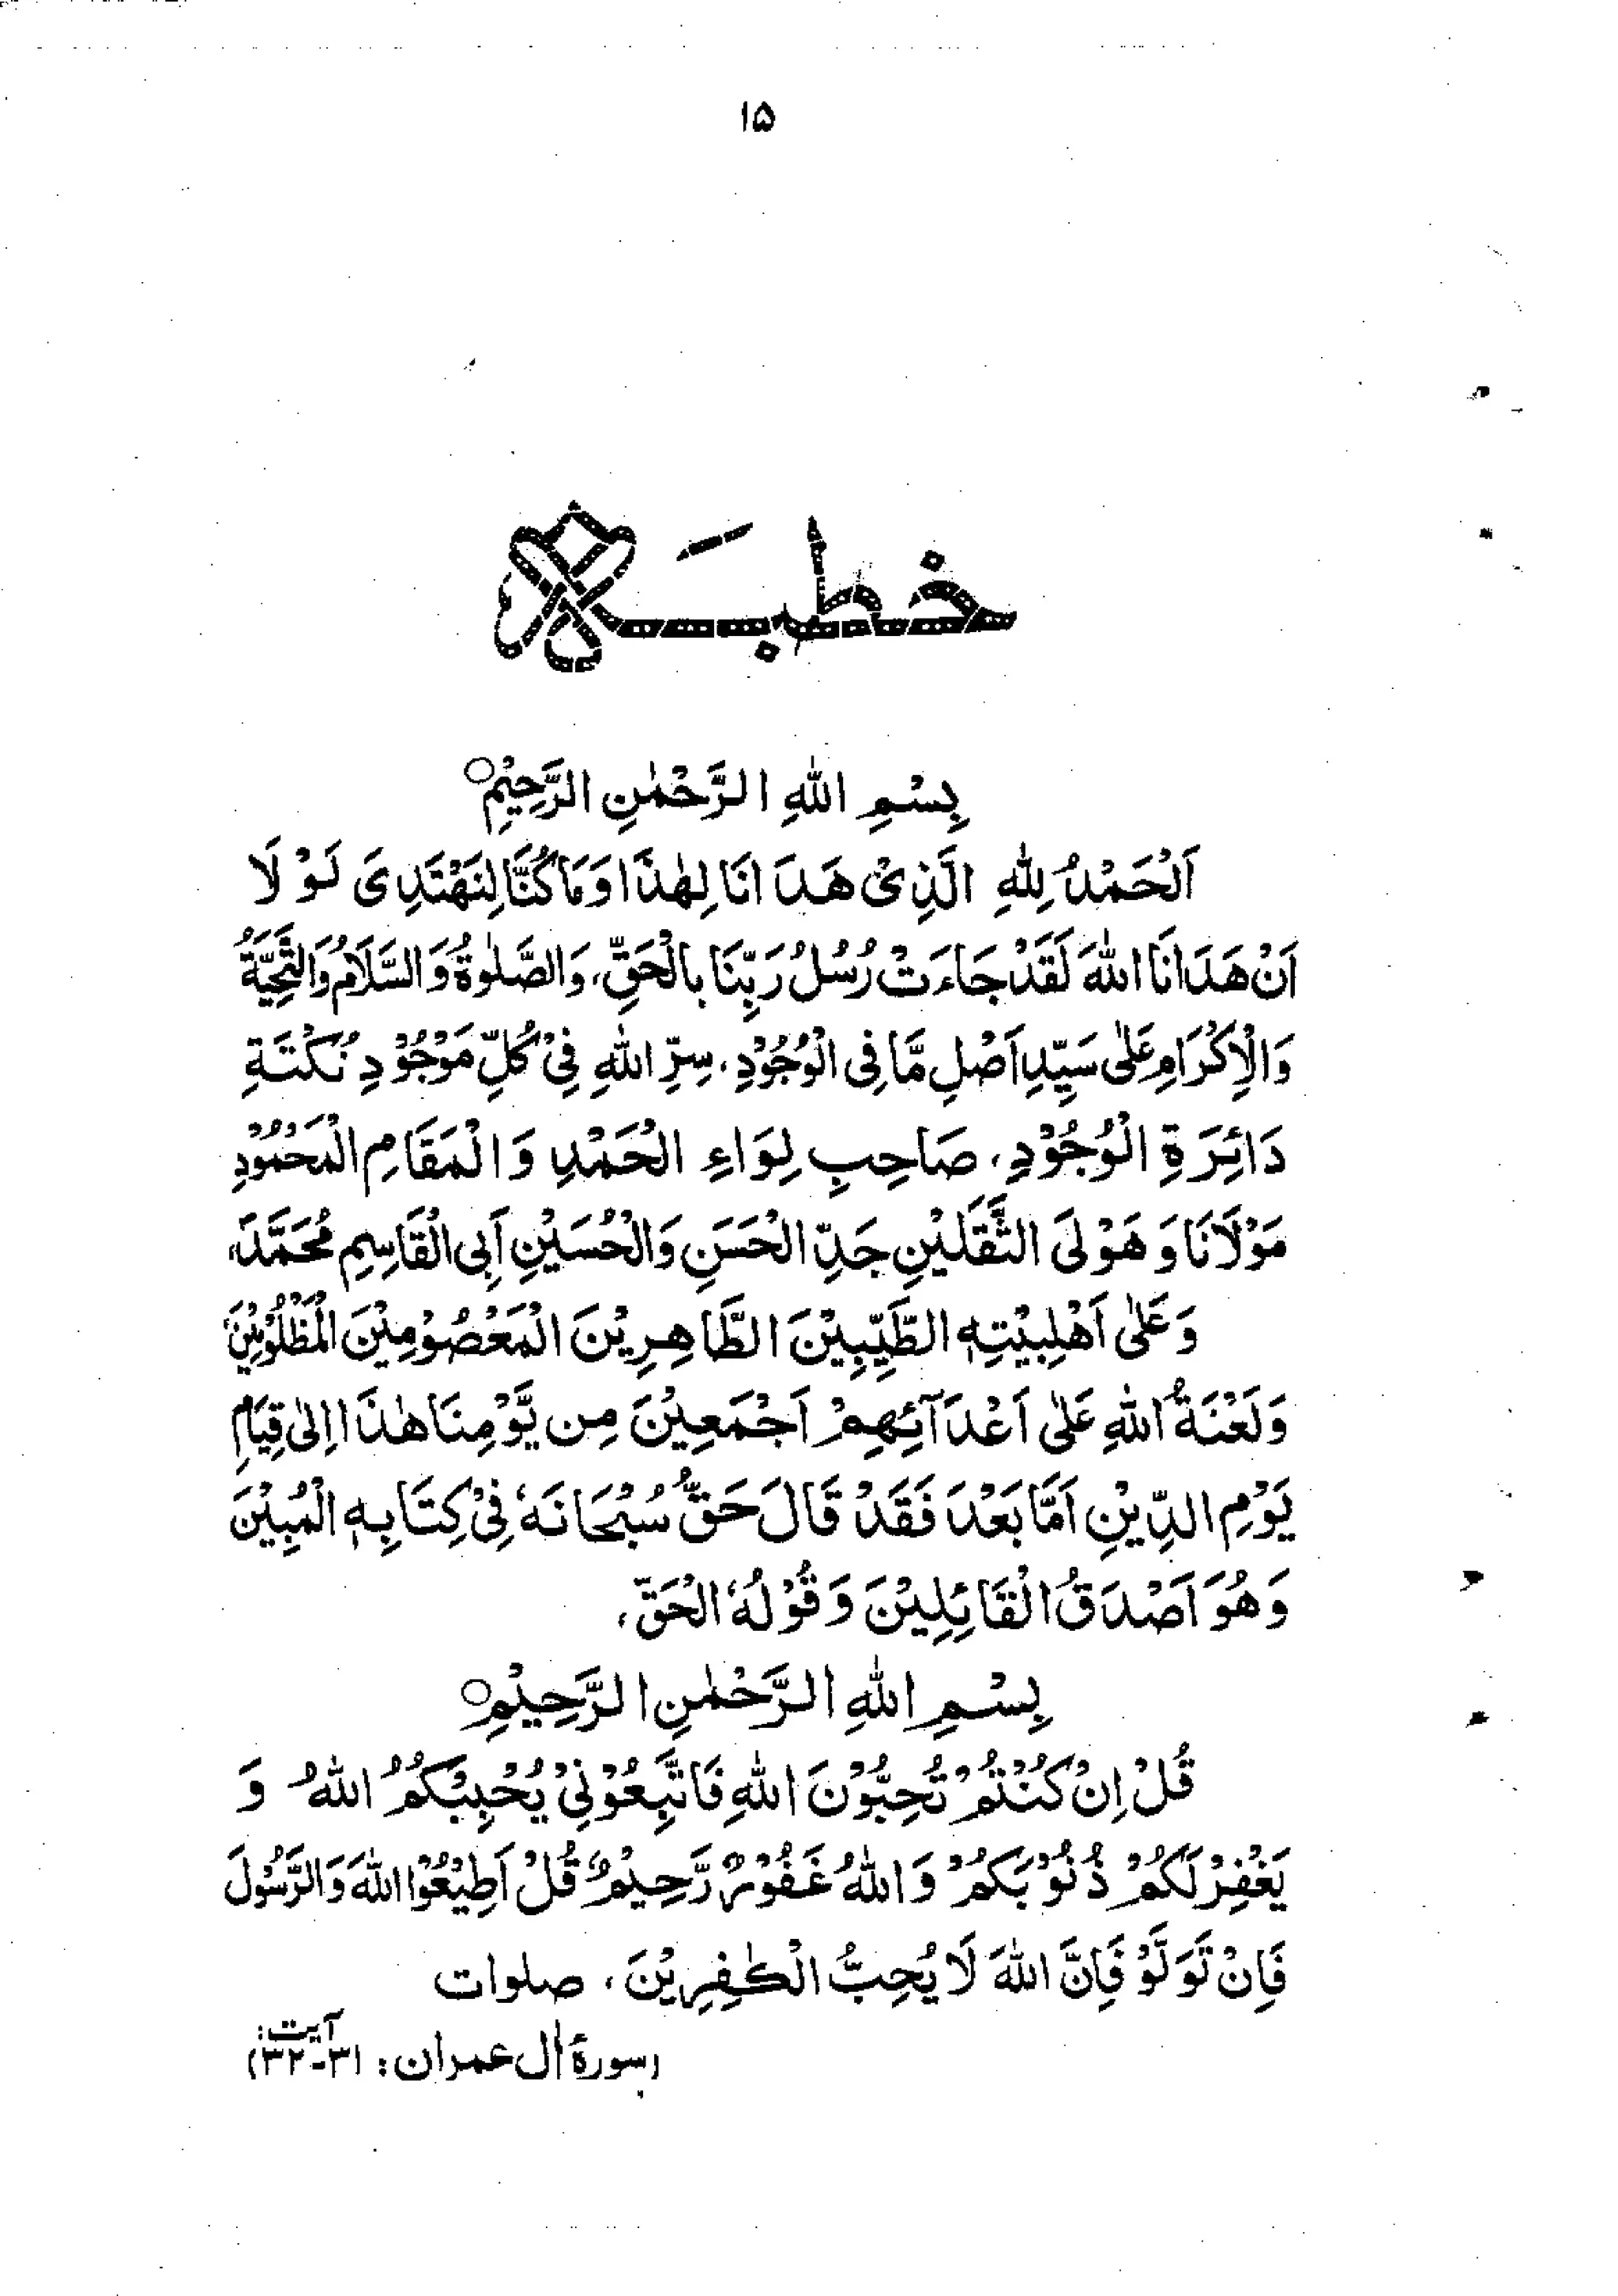 ۱۵
خطبہ
بِسْمِ اللّٰهِ الرَّحْمٰنِ الرَّحِيْمِ○
اَلْحَمْدُ لِلّٰهِ الَّذِیْ هَدَانَا لِهٰذَا وَمَا كُنَّا لِنَهْتَدِیَ لَوْ لَا
اَنْ هَدَانَا اللّٰهَ لَقَدْ جَاءَتْ رُسُلُ رَبِّنَا بِالْحَقِّ، وَالصَّلٰوةُ وَالسَّلَامُ وَالتَّحِيَّةُ
وَالْاِكْرَامِ عَلٰى سَيِّدِ اَصْلِ مَّا فِى الْوُجُوْدِ، سِرِّ اللّٰهِ فِىْ كُلِّ مَوْجُوْدٍ نُكْتَةِ
دَائِرَةِ الْوُجُوْدِ، صَاحِبِ لِوَاءِ الْحَمْدِ وَالْمَقَامِ الْمَحْمُوْدِ
مَوْلَانَا وَ هَوْلَى الثَّقَلَيْنِ جَدِّ الْحَسَنِ وَالْحُسَيْنِ اَبِى الْقَاسِمِ مُحَمَّدَ،
وَعَلٰى اَهْلِبَيْتِهٖ الطَّيِّبِيْنَ الطَّاهِرِيْنَ الْمَعْصُوْمِيْنَ الْمَظْلُوْمِيْنَ
وَلَعْنَةُ اللّٰهِ عَلٰى اَعْدَآئِهِمْ اَجْمَعِيْنَ مِن يَّوْمِنَا هٰذَا اِلٰى قِيَامِ
يَوْمِ الدِّيْنِ اَمَّا بَعْدَ فَقَدْ قَالَ حَقُّ سُبْحَانَهٗ فِىْ كِتَابِهٖ الْمُبِيْنَ
وَهُوَ اَصْدَقُ الْقَائِلِيْنَ وَقُوْلُهٗ الْحَقّ،
بِسْمِ اللّٰهِ الرَّحْمٰنِ الرَّحِيْمِ○
قُلْ اِنْ كُنْتُمْ تُحِبُّوْنَ اللّٰهِ فَاتَّبِعُوْنِىْ يُحْبِبْكُمُ اللّٰهُ وَ
يَغْفِرْ لَكُمْ ذُنُوْبَكُمْ وَ اللّٰهُ غَفُوْرٌ رَّحِيْمٌ قُلْ اَطِيْعُوْا اللّٰهَ وَالرَّسُوْلَ
فَاِنْ تَوَلَّوْ فَاِنَّ اللّٰهَ لَا يُحِبُّ الْكٰفِرِيْنَ، صلوات
(سورۂ اٰل عمران: آیت: ۳۱-۳۲)